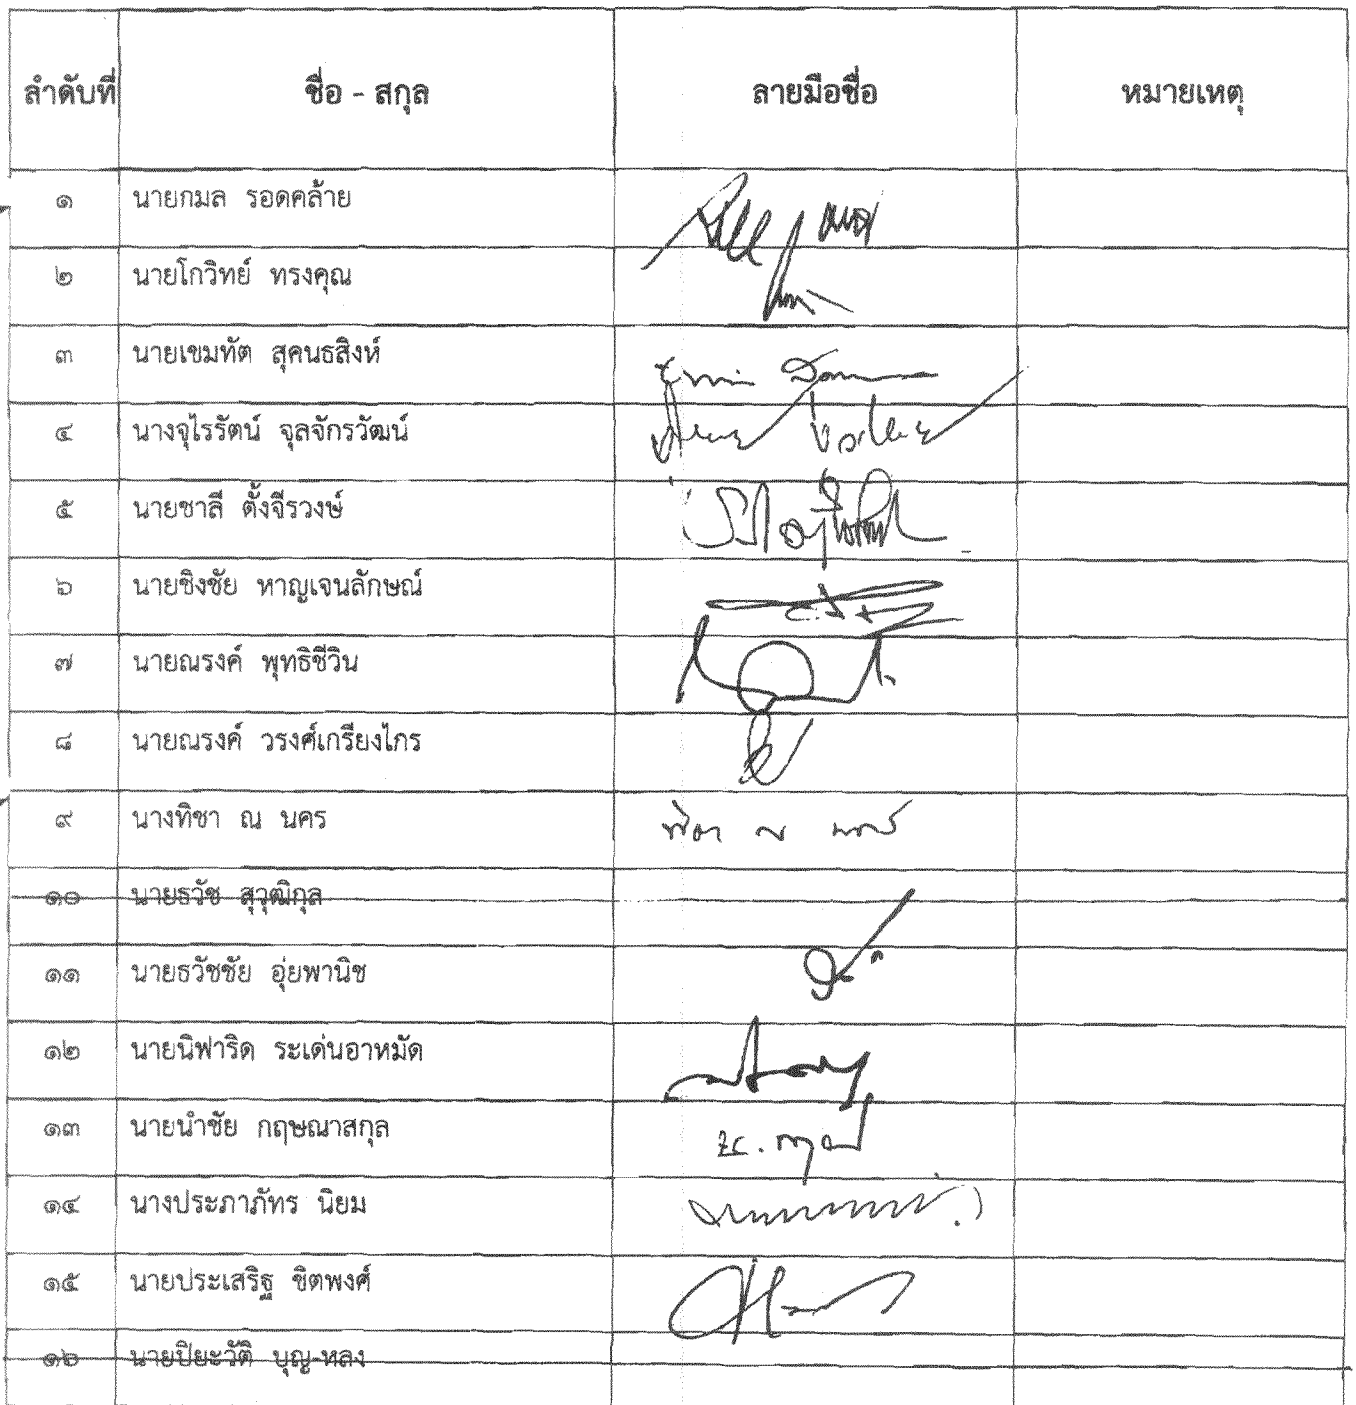 ลำดับที่ ชื่อ - สกุล ลายมือชื่อ หมายเหตุ
๑ นายกมล รอดคล้าย
๒ นายโกวิทย์ ทรงคุณ
๓ นายเขมทัต สุคนธสิงห์
๔ นางจุไรรัตน์ จุลจักรวัฒน์
๕ นายชาลี ตั้งจีรวงษ์
๖ นายชิงชัย หาญเจนลักษณ์
๗ นายณรงค์ พุทธิชีวิน
๘ นายณรงค์ วรงศ์เกรียงไกร
๙ นางทิชา ณ นคร ทิชา ณ นคร
๑๐ นายธวัช สุวุฒิกุล
๑๑ นายธวัชชัย อุ่ยพานิช
๑๒ นายนิฟาริด ระเด่นอาหมัด
๑๓ นายนำชัย กฤษณาสกุล
๑๔ นางประภาภัทร นิยม
๑๕ นายประเสริฐ ชิตพงศ์
๑๖ นายปิยะวัติ บุญ-หลง